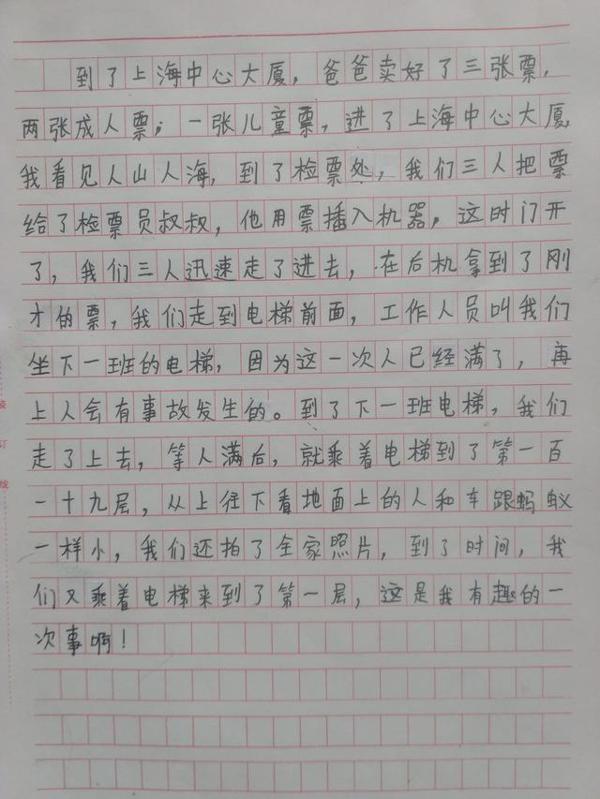 到了上海中心大厦，爸爸卖好了三张票，
两张成人票；一张儿童票，进了上海中心大厦，
我看见人山人海，到了检票处，我们三人把票
给了检票员叔叔，他用票播入机器，这时门开
了，我们三人迅速走了进去，在后机拿到了刚
才的票，我们走到电梯前面，工作人员叫我们
坐下一班的电梯，因为这一次人已经满了，再
上人会有事故发生的。到了下一班电梯，我们
走了上去，等人满后，就乘着电梯到了第一百
一十九层，从上往下看地面上的人和车跟蚂蚁
一样小，我们还拍了全家照片，到了时间，我
们又乘着电梯来到了第一层，这是我有趣的一
次事啊！
装
订
线